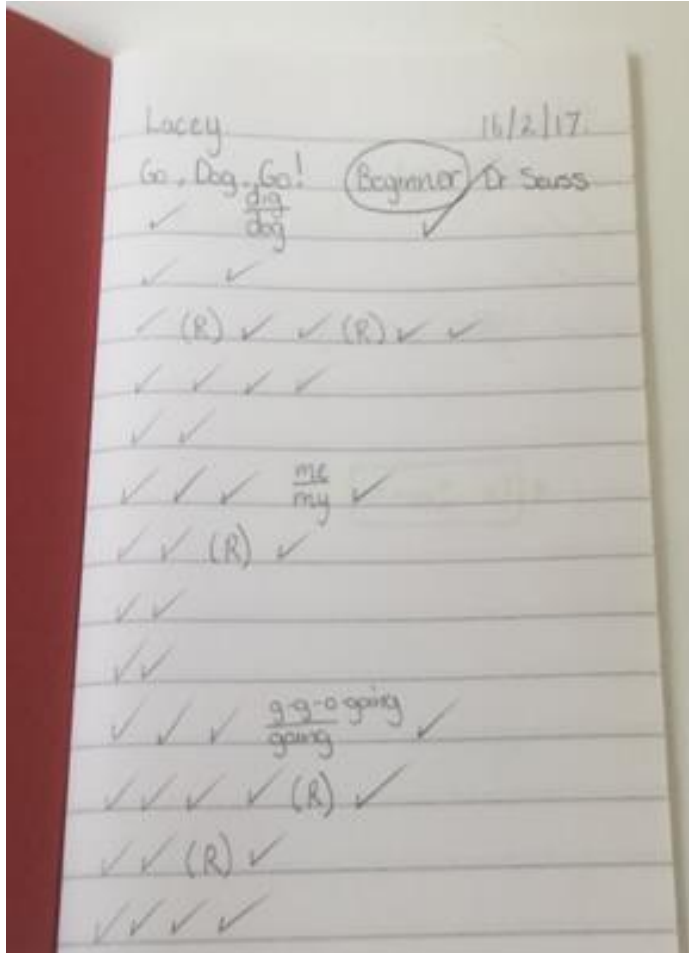 Lacey 16/2/17.
Go, Dog. Go! Beginner Dr Seuss
✓ dig ✓
dog
✓ ✓
✓ (R) ✓ ✓ (R) ✓ ✓
✓ ✓ ✓ ✓
✓ ✓
✓ ✓ ✓ me ✓
my
✓ ✓ (R) ✓
✓ ✓
✓ ✓
✓ ✓ ✓ g-g-o going ✓
going
✓ ✓ ✓ ✓ (R) ✓
✓ ✓ (R) ✓
✓ ✓ ✓ ✓